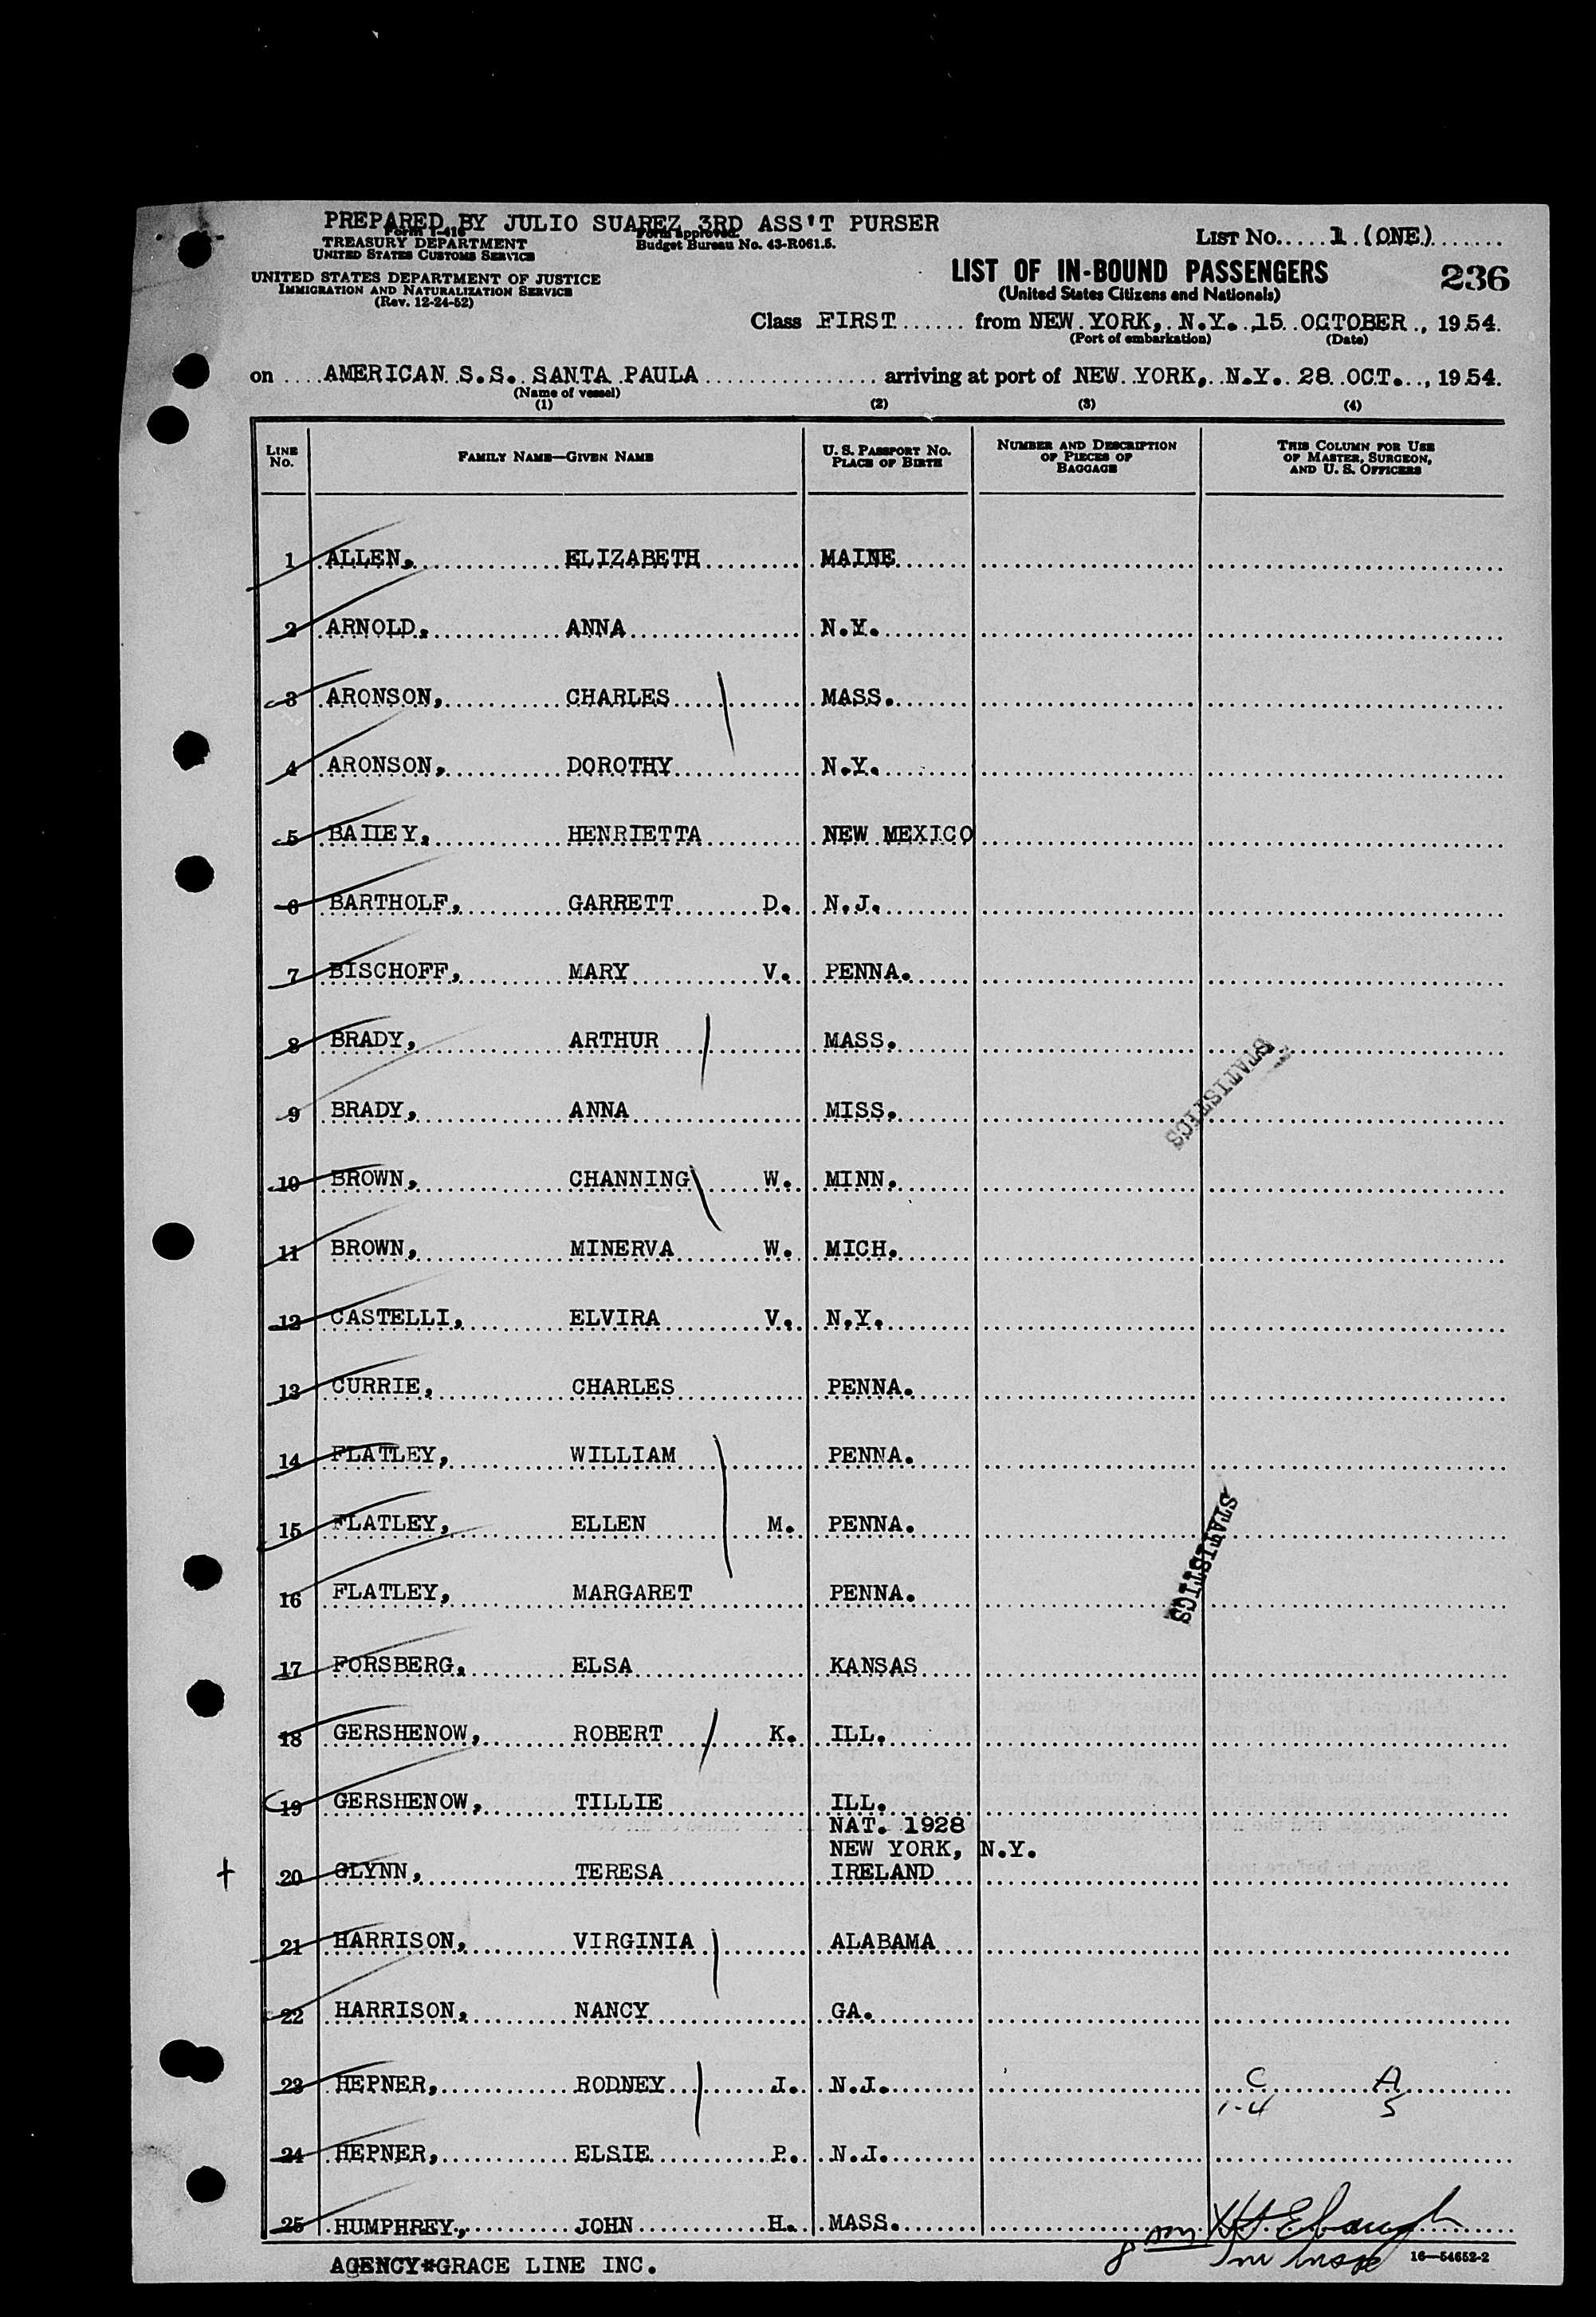 PREPARED BY JULIO SUAREZ 3RD ASS'T PURSER
Form I-416
TREASURY DEPARTMENT
UNITED STATES CUSTOMS SERVICE
Form approved.
Budget Bureau No. 43-R061.5.
LIST No. 1 (ONE)
UNITED STATES DEPARTMENT OF JUSTICE
IMMIGRATION AND NATURALIZATION SERVICE
(Rev. 12-24-52)
LIST OF IN-BOUND PASSENGERS
(United States Citizens and Nationals)
236
Class FIRST from NEW YORK, N.Y. 15 OCTOBER, 1954.
(Port of embarkation) (Date)
on AMERICAN S.S. SANTA PAULA arriving at port of NEW YORK, N.Y. 28 OCT., 1954.
(Name of vessel)
(1) (2) (3) (4)
LINE No. FAMILY NAME—GIVEN NAME U. S. PASSPORT NO. PLACE OF BIRTH NUMBER AND DESCRIPTION OF PIECES OF BAGGAGE THIS COLUMN FOR USE OF MASTER, SURGEON, AND U. S. OFFICERS
1 ALLEN, ELIZABETH MAINE
2 ARNOLD, ANNA N.Y.
3 ARONSON, CHARLES MASS.
4 ARONSON, DOROTHY N.Y.
5 BAIIEY, HENRIETTA NEW MEXICO
6 BARTHOLF, GARRETT D. N.J.
7 BISCHOFF, MARY V. PENNA.
8 BRADY, ARTHUR MASS.
9 BRADY, ANNA MISS.
STATISTICS
10 BROWN, CHANNING W. MINN.
11 BROWN, MINERVA W. MICH.
12 CASTELLI, ELVIRA V. N.Y.
13 CURRIE, CHARLES PENNA.
14 FLATLEY, WILLIAM PENNA.
15 FLATLEY, ELLEN M. PENNA.
STATISTICS
16 FLATLEY, MARGARET PENNA.
17 FORSBERG, ELSA KANSAS
18 GERSHENOW, ROBERT K. ILL.
19 GERSHENOW, TILLIE ILL.
NAT. 1928
NEW YORK, N.Y.
20 GLYNN, TERESA IRELAND
21 HARRISON, VIRGINIA ALABAMA
22 HARRISON, NANCY GA.
23 HEPNER, RODNEY J. N.J. C A
1-4 5
24 HEPNER, ELSIE P. N.J.
25 HUMPHREY, JOHN H. MASS.
AGENCY*GRACE LINE INC.
16—54652-2